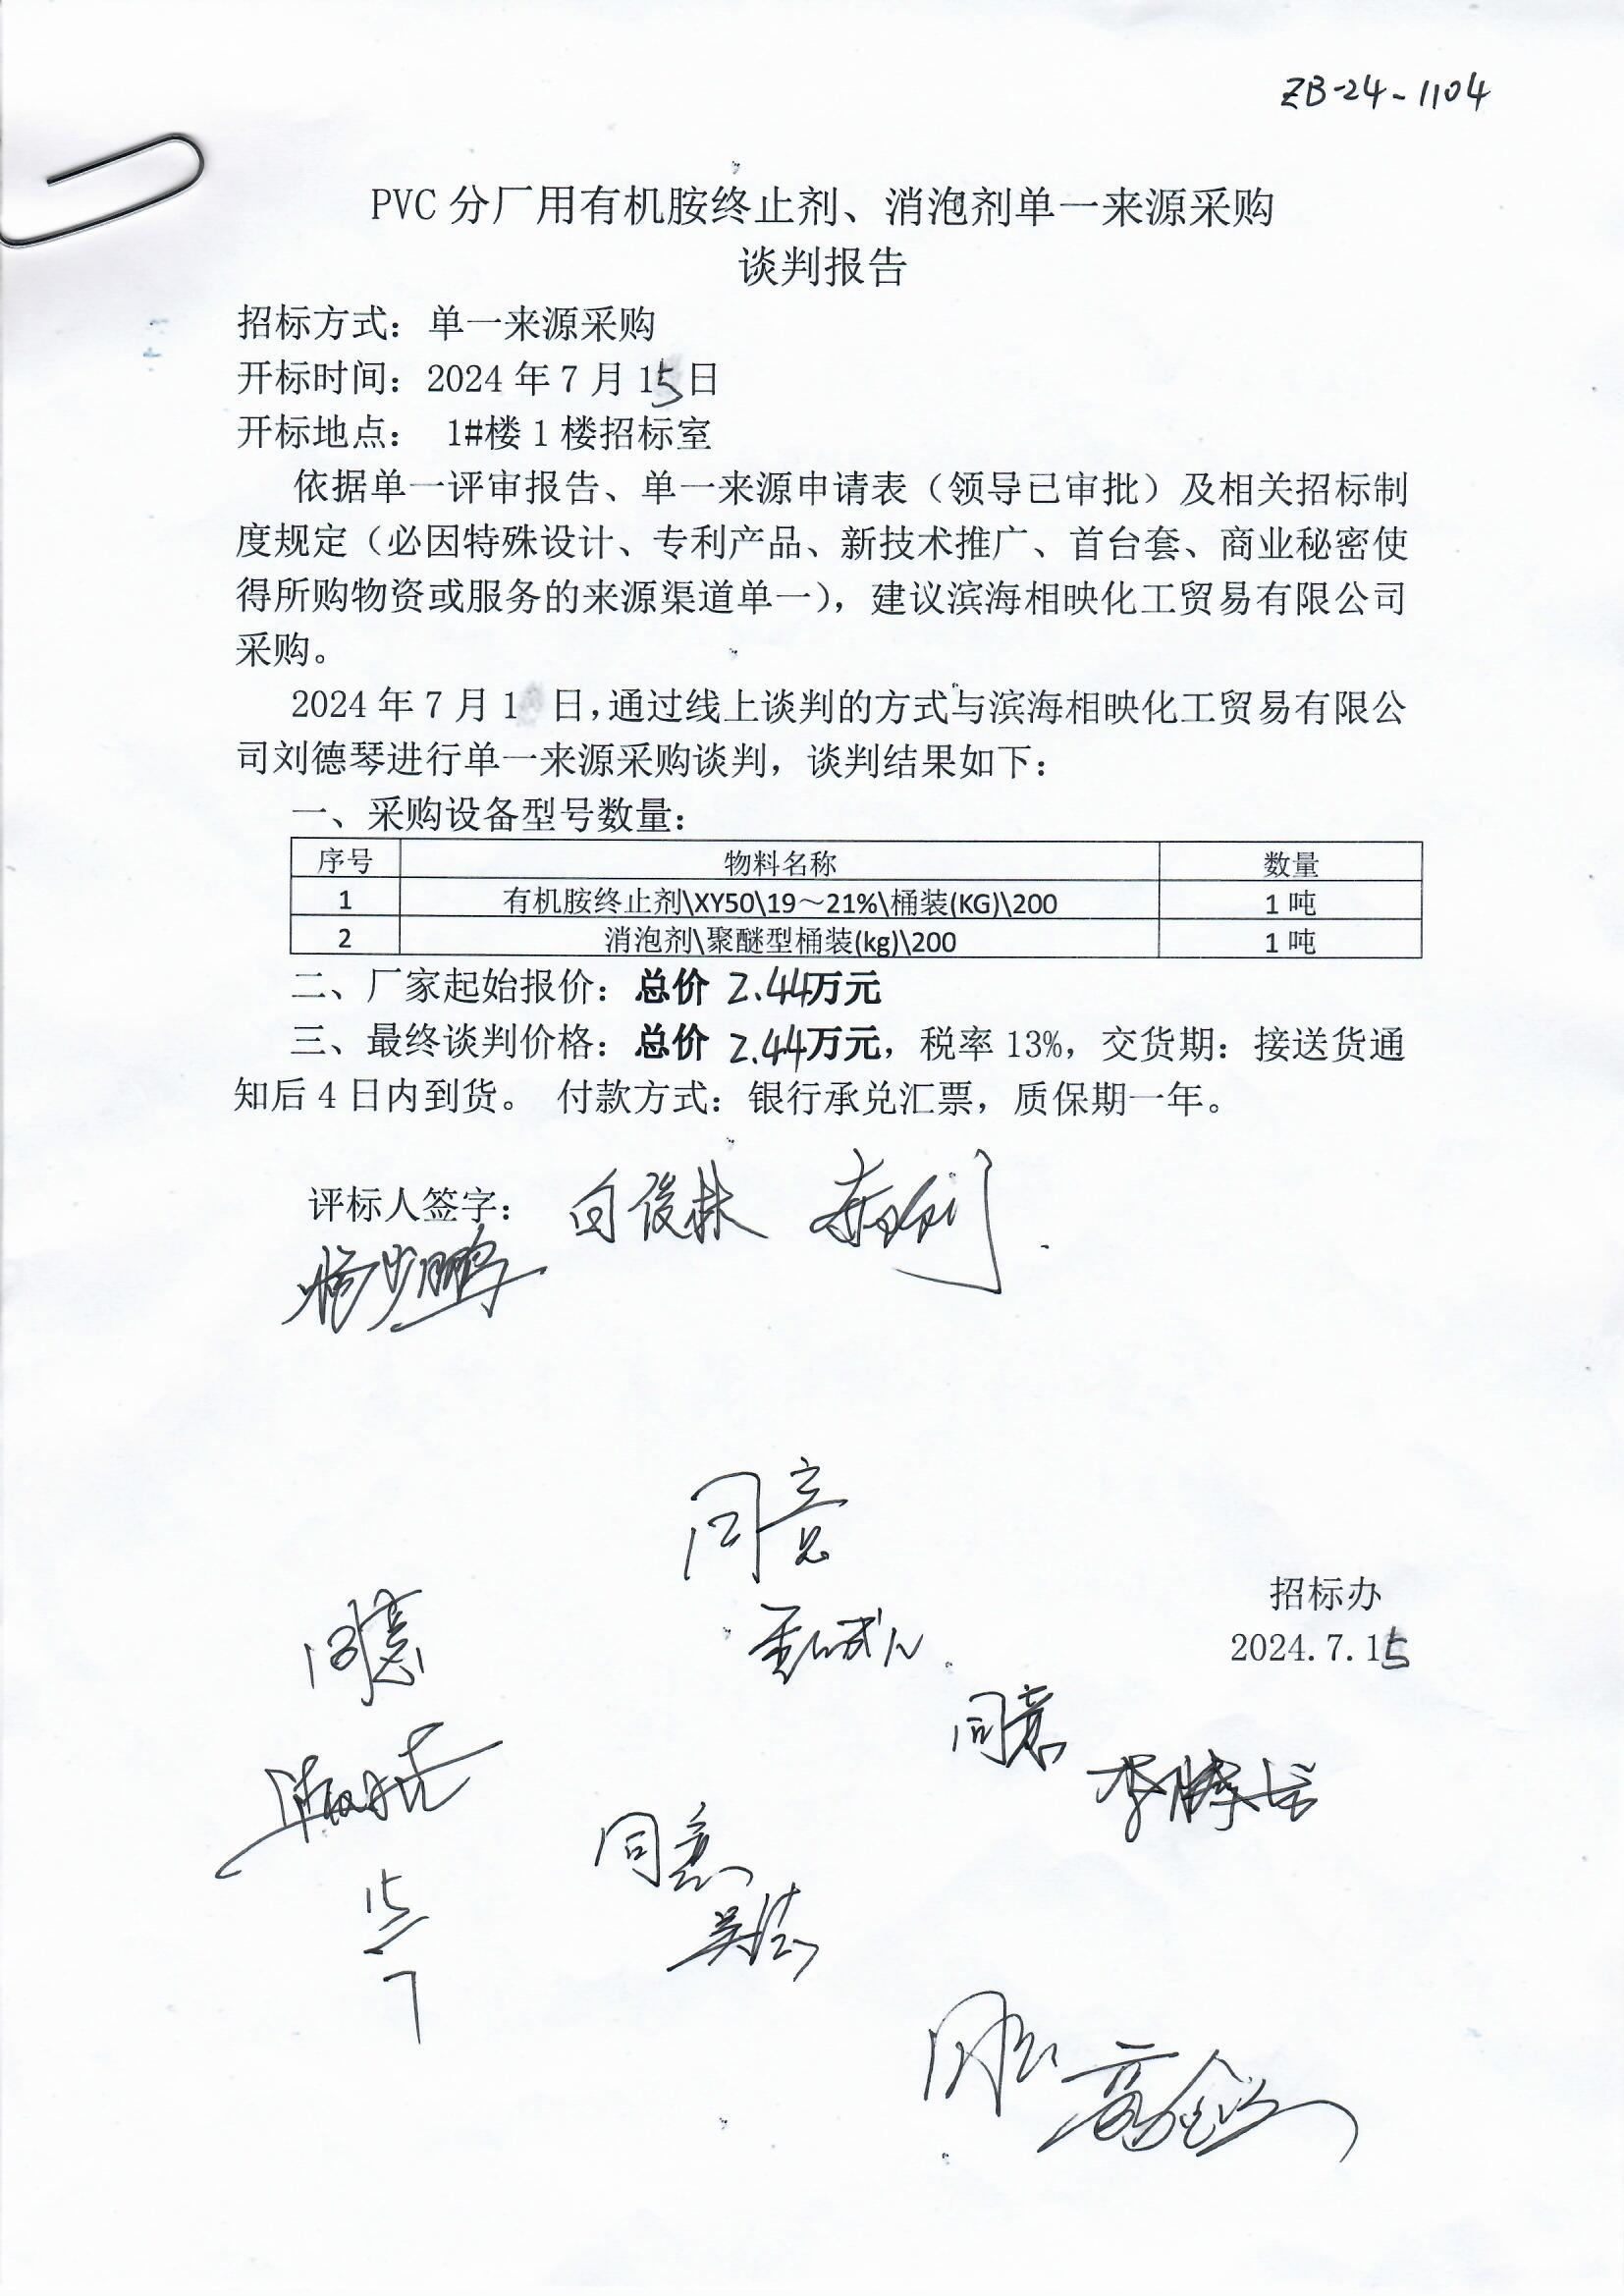 ZB-24-1104
PVC 分厂用有机胺终止剂、消泡剂单一来源采购
谈判报告
招标方式：单一来源采购
开标时间：2024 年 7 月 15日
开标地点： 1#楼 1 楼招标室
依据单一评审报告、单一来源申请表（领导已审批）及相关招标制
度规定（必因特殊设计、专利产品、新技术推广、首台套、商业秘密使
得所购物资或服务的来源渠道单一），建议滨海相映化工贸易有限公司
采购。
2024 年 7 月 1 日，通过线上谈判的方式与滨海相映化工贸易有限公
司刘德琴进行单一来源采购谈判，谈判结果如下：
一、采购设备型号数量：
序号 物料名称 数量
1 有机胺终止剂\XY50\19～21%\桶装(KG)\200 1 吨
2 消泡剂\聚醚型桶装(kg)\200 1 吨
二、厂家起始报价：总价 2.44万元
三、最终谈判价格：总价 2.44万元，税率 13%，交货期：接送货通
知后 4 日内到货。 付款方式：银行承兑汇票，质保期一年。
评标人签字： 白俊林
同意
招标办
2024.7.15
同意
同意
同意
吴洁
15
7
同意